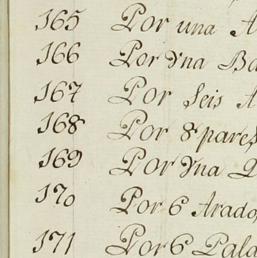 165 Por una A
166 Por Vna Ba
167 Por Seis A
168 Por 8 pares
169 Por Vna
170 Por 6 Arado,
171 Por 6 Pala